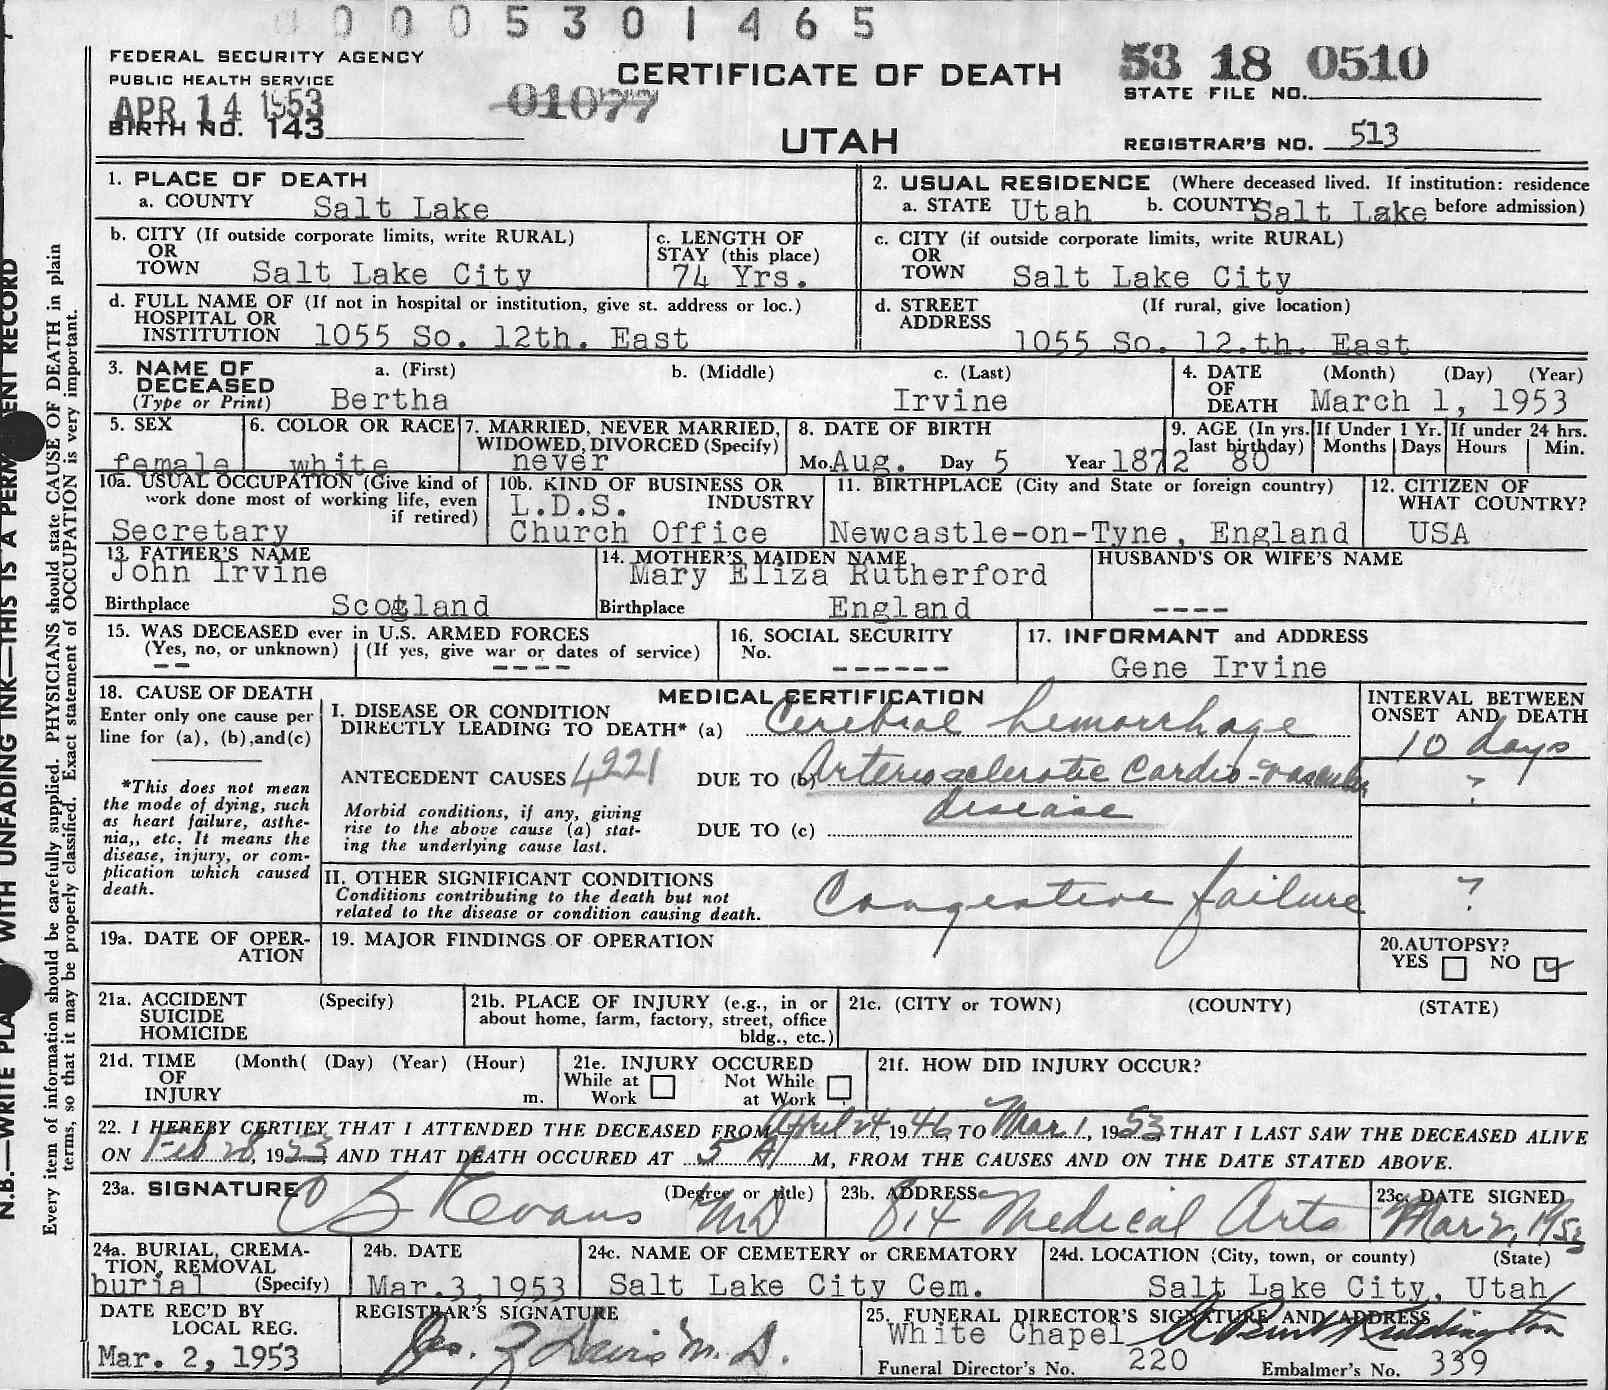 0 0 0 5 3 0 1 4 6 5
FEDERAL SECURITY AGENCY
PUBLIC HEALTH SERVICE
APR 14 1953
BIRTH NO. 143
01077
CERTIFICATE OF DEATH
UTAH
53 18 0510
STATE FILE NO.
REGISTRAR'S NO. 513
1. PLACE OF DEATH
a. COUNTY Salt Lake
2. USUAL RESIDENCE (Where deceased lived. If institution: residence
a. STATE Utah b. COUNTY Salt Lake before admission)
b. CITY (If outside corporate limits, write RURAL)
OR
TOWN Salt Lake City
c. LENGTH OF
STAY (this place)
74 Yrs.
c. CITY (if outside corporate limits, write RURAL)
OR
TOWN Salt Lake City
d. FULL NAME OF (If not in hospital or institution, give st. address or loc.)
HOSPITAL OR
INSTITUTION 1055 So. 12th. East
d. STREET (If rural, give location)
ADDRESS
1055 So. 12.th. East
3. NAME OF a. (First) b. (Middle) c. (Last)
DECEASED
(Type or Print) Bertha Irvine
4. DATE (Month) (Day) (Year)
OF
DEATH March 1, 1953
5. SEX
female
6. COLOR OR RACE
white
7. MARRIED, NEVER MARRIED,
WIDOWED, DIVORCED (Specify)
never
8. DATE OF BIRTH
Mo. Aug. Day 5 Year 1872
9. AGE (In yrs.
last birthday)
80
If Under 1 Yr.
Months Days
If under 24 hrs.
Hours Min.
10a. USUAL OCCUPATION (Give kind of
work done most of working life, even
if retired)
Secretary
10b. KIND OF BUSINESS OR
L.D.S. INDUSTRY
Church Office
11. BIRTHPLACE (City and State or foreign country)
Newcastle-on-Tyne, England
12. CITIZEN OF
WHAT COUNTRY?
USA
13. FATHER'S NAME
John Irvine
Birthplace Scotland
14. MOTHER'S MAIDEN NAME
Mary Eliza Rutherford
Birthplace England
HUSBAND'S OR WIFE'S NAME
----
15. WAS DECEASED ever in U.S. ARMED FORCES
(Yes, no, or unknown) (If yes, give war or dates of service)
-- ----
16. SOCIAL SECURITY
No. ------
17. INFORMANT and ADDRESS
Gene Irvine
18. CAUSE OF DEATH
Enter only one cause per
line for (a), (b), and (c)
*This does not mean
the mode of dying, such
as heart failure, asthe-
nia,, etc. It means the
disease, injury, or com-
plication which caused
death.
MEDICAL CERTIFICATION
I. DISEASE OR CONDITION
DIRECTLY LEADING TO DEATH* (a) Cerebral hemorrhage
ANTECEDENT CAUSES 4221 DUE TO (b) Arteriosclerotic Cardio-vascular
disease
Morbid conditions, if any, giving
rise to the above cause (a) stat-
ing the underlying cause last.
DUE TO (c)
INTERVAL BETWEEN
ONSET AND DEATH
10 days
?
II. OTHER SIGNIFICANT CONDITIONS
Conditions contributing to the death but not
related to the disease or condition causing death.
Congestive failure
?
19a. DATE OF OPER-
ATION
19. MAJOR FINDINGS OF OPERATION
20. AUTOPSY?
YES NO
21a. ACCIDENT (Specify)
SUICIDE
HOMICIDE
21b. PLACE OF INJURY (e.g., in or
about home, farm, factory, street, office
bldg., etc.)
21c. (CITY or TOWN) (COUNTY) (STATE)
21d. TIME (Month( (Day) (Year) (Hour)
OF
INJURY m.
21e. INJURY OCCURED
While at Work Not While at Work
21f. HOW DID INJURY OCCUR?
22. I HEREBY CERTIFY THAT I ATTENDED THE DECEASED FROM April 24, 1946, TO Mar 1, 1953 THAT I LAST SAW THE DECEASED ALIVE
ON Feb 28, 1953 AND THAT DEATH OCCURED AT 5 A M, FROM THE CAUSES AND ON THE DATE STATED ABOVE.
23a. SIGNATURE (Degree or title)
C S Evans MD
23b. ADDRESS
814 Medical Arts
23c. DATE SIGNED
Mar 2, 1953
24a. BURIAL, CREMA-
TION, REMOVAL
burial (Specify)
24b. DATE
Mar.3,1953
24c. NAME OF CEMETERY or CREMATORY
Salt Lake City Cem.
24d. LOCATION (City, town, or county) (State)
Salt Lake City, Utah
DATE REC'D BY
LOCAL REG.
Mar. 2, 1953
REGISTRAR'S SIGNATURE
Jas. Z Davis M.D.
25. FUNERAL DIRECTOR'S SIGNATURE AND ADDRESS
White Chapel
Funeral Director's No. 220 Embalmer's No. 339
WITH UNFADING INK—THIS IS A
RECORD
N.B.—WRITE
Every item of information should be carefully supplied. PHYSICIANS should state CAUSE OF DEATH in plain
terms, so that it may be properly classified. Exact statement of OCCUPATION is very important.